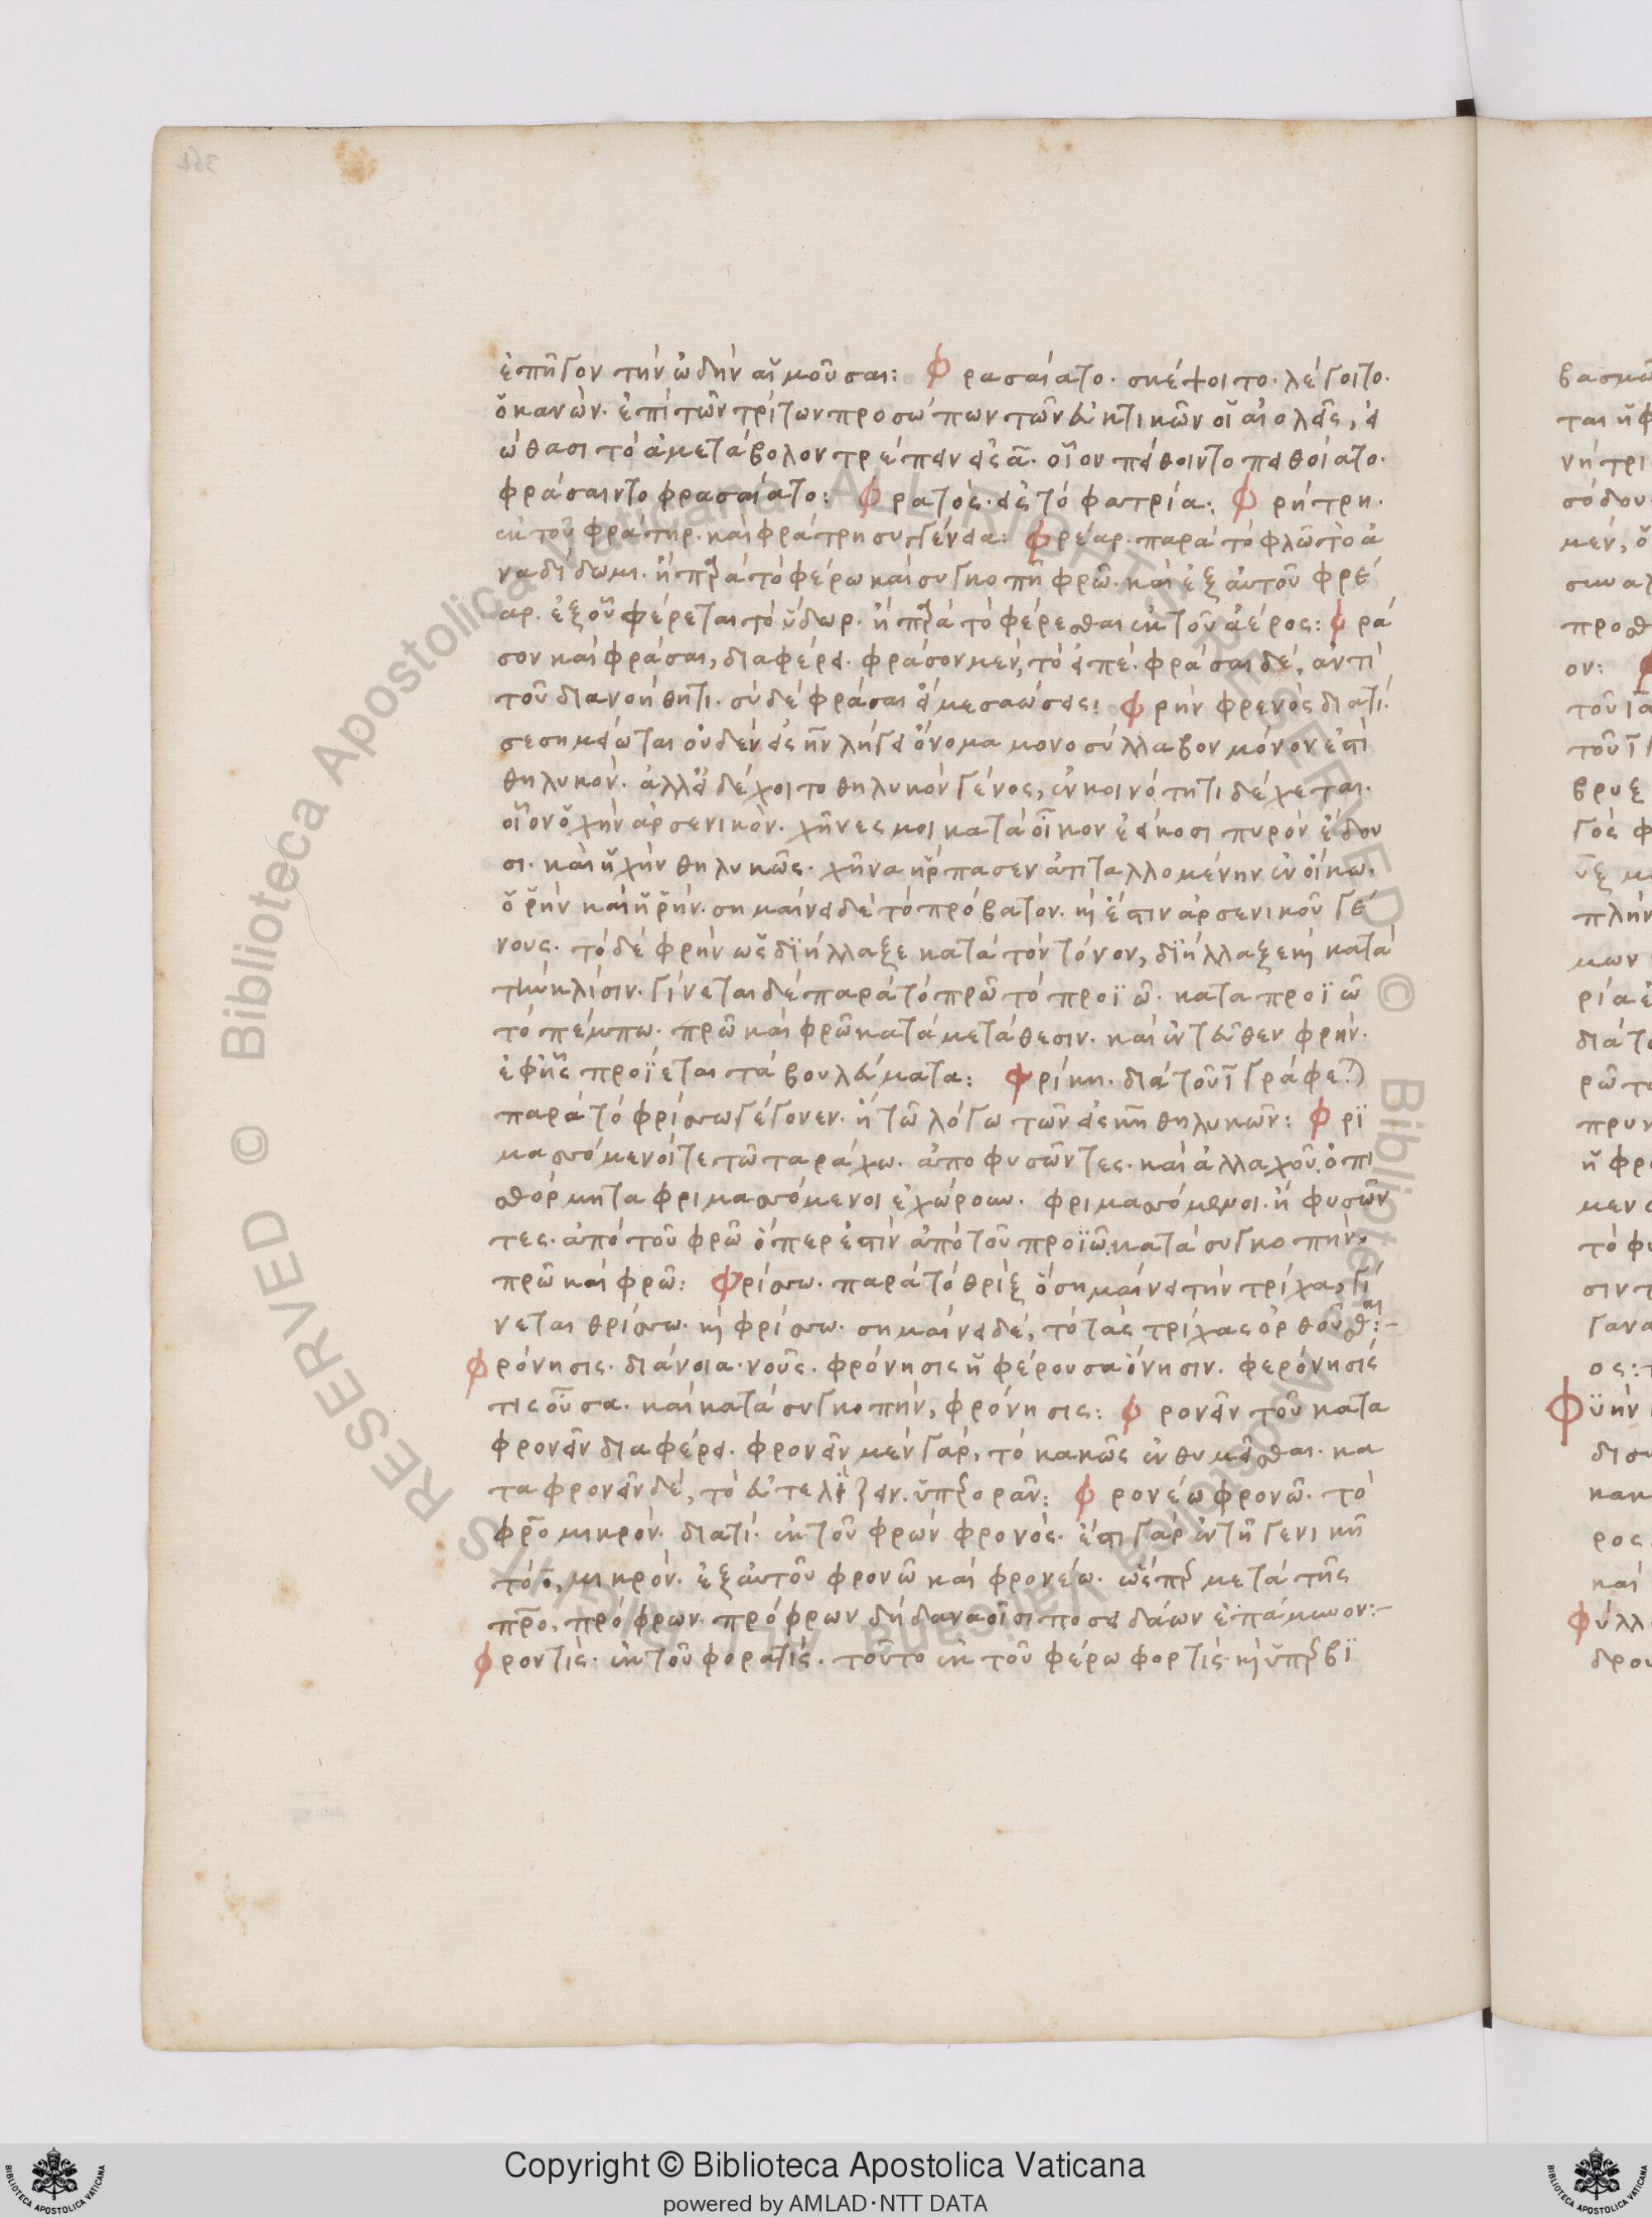 ἐπῆγον τὴν ὠδὴν αἱ μοῦσαι: Φρασαίατο. σκέψοιτο. λέγοιτο.
ὁ κανὼν. ἐπὶ τῶν τρίτων προσώπων τῶν εὐκτικῶν οἱ αἰολεῖς, εἰ
ώθασι τὸ ἀμετάβολον τρέπειν εἰς α. οἷον πείθοιντο πειθοίατο.
φράσαιντο φρασαίατο: Φρατὸς. εἰς τὸ φατρία: Φρήτρη.
ἐκ τοῦ φράτηρ. καὶ φράτρη συγγένεια: Φρέαρ. παρὰ τὸ φλῶ τὸ ἀ
ναδίδωμι. ἢ παρὰ τὸ φέρω καὶ συγκοπῆ φρῶ. καὶ ἐξ αὐτοῦ φρέ
αρ. ἐξ οὗ φέρεται τὸ ὕδωρ. ἢ παρὰ τὸ φέρεσθαι ἐκ τοῦ ἀέρος: Φρά
σον καὶ φράσαι, διαφέρει. φράσον μὲν, τὸ εἰπέ. φράσαι δέ, ἀντὶ
τοῦ διανοήθητι. σὺ δὲ φράσαι εἴ με σαώσεις: Φρὴν φρενὸς διατί.
σεσημείωται οὐδὲν εἰς ην λήγει ὄνομα μονοσύλλαβον μόνον ἐστὶ
θηλυκὸν. ἀλλ' εἰ δέχοιτο θηλυκὸν γένος, ἐν κοινότητι δέχεται.
οἷον ὁ χὴν ἀρσενικὸν. χῆνες μοι κατὰ οἶκον ἐείκοσι πυρὸν ἔδου
σι. καὶ ἡ χὴν θηλυκῶς. χῆνα ἥρπασεν ἀτιταλλομένην ἐν οἴκω.
ὁ ῥὴν καὶ ἡ ῥὴν. σημαίνει δὲ τὸ πρόβατον. καὶ ἔστιν ἀρσενικοῦ γέ
νους. τὸ δὲ φρὴν ὡς διήλλαξε κατὰ τὸν τόνον, διήλλαξε καὶ κατὰ
τὴν κλίσιν. γίνεται δὲ παρὰ τὸ πρῶ τὸ προϊῶ. καταπροϊῶ
τὸ πέμπω. πρῶ καὶ φρῶ κατὰ μετάθεσιν. καὶ ἐντεῦθεν φρὴν.
ἐφ' ἧς προΐεται τὰ βουλεύματα: Φρίκη. διὰ τοῦ ι γράφεται
παρὰ τὸ φρίσσω γέγονεν. ἢ τῶ λόγω τῶν εἰς κη θηλυκῶν: Φρι
μασσόμενοί τε τῶ ταράχω. ἀποφυσῶντες. καὶ ἀλλαχοῦ. ὀπι
σθόρμητα φριμασσόμενοι ἐχώρουν. φριμασσόμενοι. ἢ φυσῶν
τες. ἀπὸ τοῦ φρῶ ὅπερ ἐστὶν ἀπὸ τοῦ προϊῶ. κατὰ συγκοπὴν,
πρῶ καὶ φρῶ: Φρίσσω. παρὰ τὸ θρὶξ ὃ σημαίνει τὴν τρίχα, γί
νεται θρίσσω. καὶ φρίσσω. σημαίνει δέ, τὸ τὰς τρίχας ὀρθοῦσθαι:-
Φρόνησις. διάνοια. νοῦς. φρόνησις ἡ φέρουσα ὄνησιν. φερόνησίς
τις οὖσα. καὶ κατὰ συγκοπὴν, φρόνησις: Φρονεῖν τοῦ κατα
φρονεῖν διαφέρει. φρονεῖν μὲν γάρ, τὸ κακῶς ἐνθυμεῖσθαι. κα
ταφρονεῖν δέ, τὸ εὐτελίζειν. ὑπεροράν: Φρονέω φρονῶ. τὸ
φρο μικρὸν. διατί. ἐκ τοῦ φρὼν φρονὸς. ἔστι γὰρ ἐν τῆ γενικῆ
τὸ ο, μικρὸν. ἐξ αὐτοῦ φρονῶ καὶ φρονέω. ὥσπερ μετὰ τῆς
προ, πρόφρων. πρόφρων δὴ δαναοῖσι ποσειδάων ἐπάμυνον:-
Φροντὶς. ἐκ τοῦ φορατὶς. τοῦτο ἐκ τοῦ φέρω φορτὶς. καὶ ὑπερβι
Copyright © Biblioteca Apostolica Vaticana
powered by AMLAD・NTT DATA